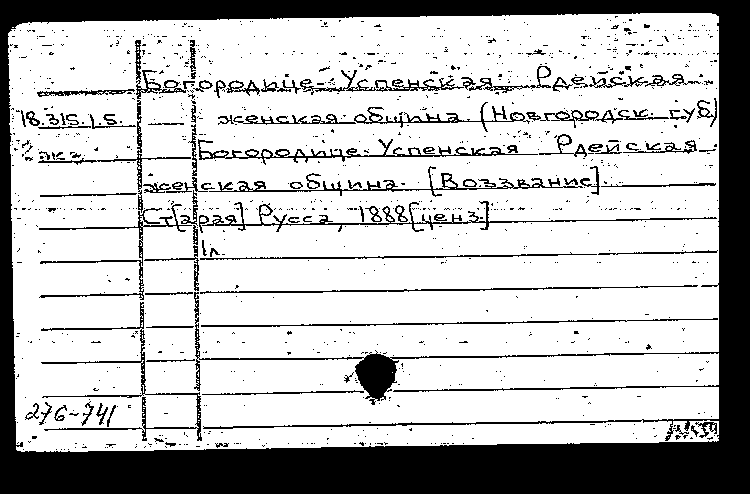 Богородице-Успенская Рдейская
18.315.1.5. женская община (Новгородск. губ)
2 экз Богородице-Успенская Рдейская
женская община. [Воззвание].
Ст[арая] Русса, 1888[ценз.]
1л.
276-741